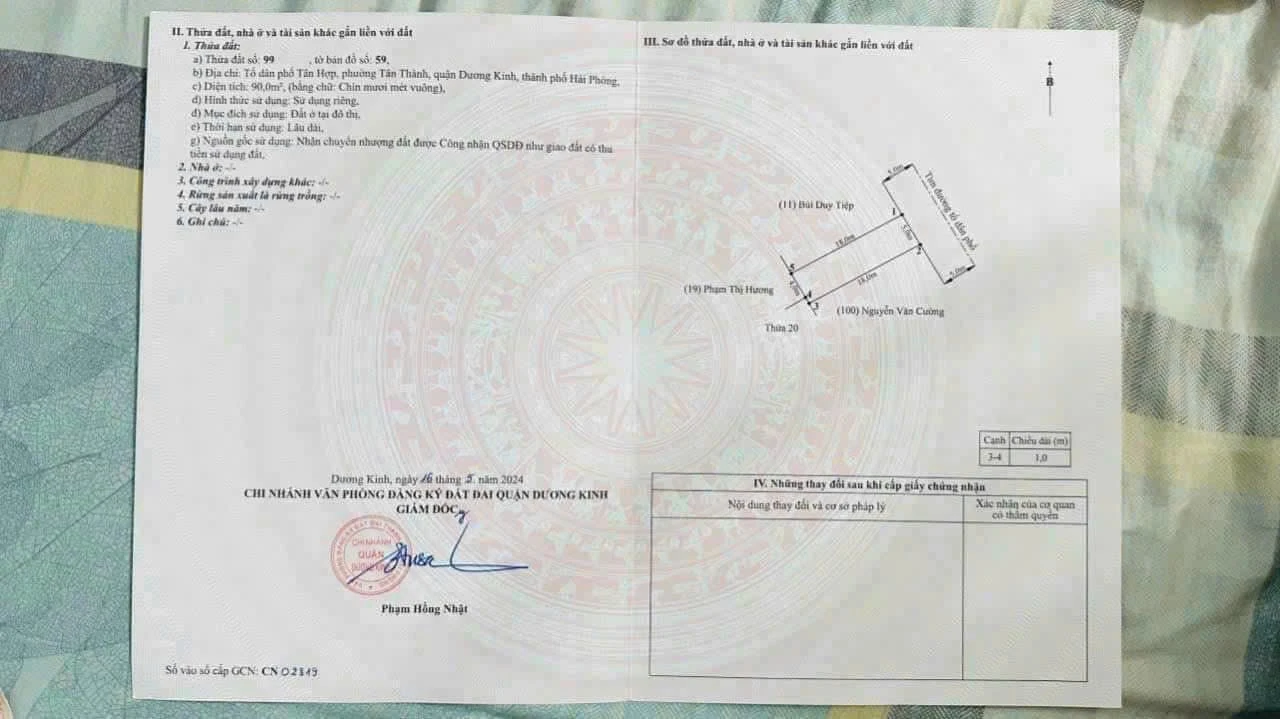 II. Thửa đất, nhà ở và tài sản khác gắn liền với đất
1. Thửa đất:
a) Thửa đất số: 99 , tờ bản đồ số: 59,
b) Địa chỉ: Tổ dân phố Tân Hợp, phường Tân Thành, quận Dương Kinh, thành phố Hải Phòng,
c) Diện tích: 90,0m², (bằng chữ: Chín mươi mét vuông),
d) Hình thức sử dụng: Sử dụng riêng,
đ) Mục đích sử dụng: Đất ở tại đô thị,
e) Thời hạn sử dụng: Lâu dài,
g) Nguồn gốc sử dụng: Nhận chuyển nhượng đất được Công nhận QSDĐ như giao đất có thu
tiền sử dụng đất,
2. Nhà ở: -/-
3. Công trình xây dựng khác: -/-
4. Rừng sản xuất là rừng trồng: -/-
5. Cây lâu năm: -/-
6. Ghi chú: -/-
Dương Kinh, ngày 16 tháng 5. năm 2024
CHI NHÁNH VĂN PHÒNG ĐĂNG KÝ ĐẤT ĐAI QUẬN DƯƠNG KINH
GIÁM ĐỐC
CHI NHÁNH
QUẬN
DƯƠNG KINH
Phạm Hồng Nhật
Số vào sổ cấp GCN: CN 02819
III. Sơ đồ thửa đất, nhà ở và tài sản khác gắn liền với đất
B
5,0m
Tim đường tổ dân phố
(11) Bùi Duy Tiệp
1
18,0m
5,0m
2
5
18,0m
5,0m
(19) Phạm Thị Hương
4,0m
4
3
(100) Nguyễn Văn Cường
Thửa 20
Cạnh Chiều dài (m)
3-4 1,0
IV. Những thay đổi sau khi cấp giấy chứng nhận
Nội dung thay đổi và cơ sở pháp lý
Xác nhận của cơ quan
có thẩm quyền